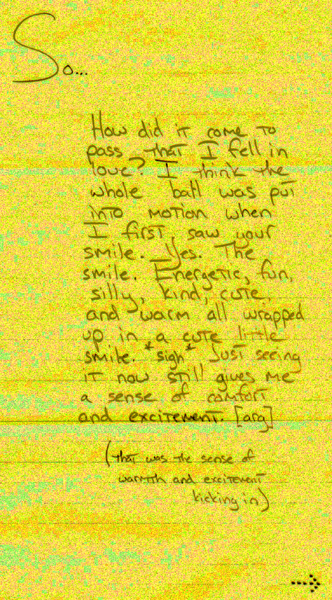 So...
How did it come to
pass that I fell in
love? I think the
whole ball was put
into motion when
I first saw your
smile. Yes. The
smile. Energetic, fun,
silly, kind, cute,
and warm all wrapped
up in a cute little
smile. *sigh* Just seeing
it now still gives me
a sense of comfort
and excitement. [arg]
(that was the sense of
warmth and excitement
kicking in)